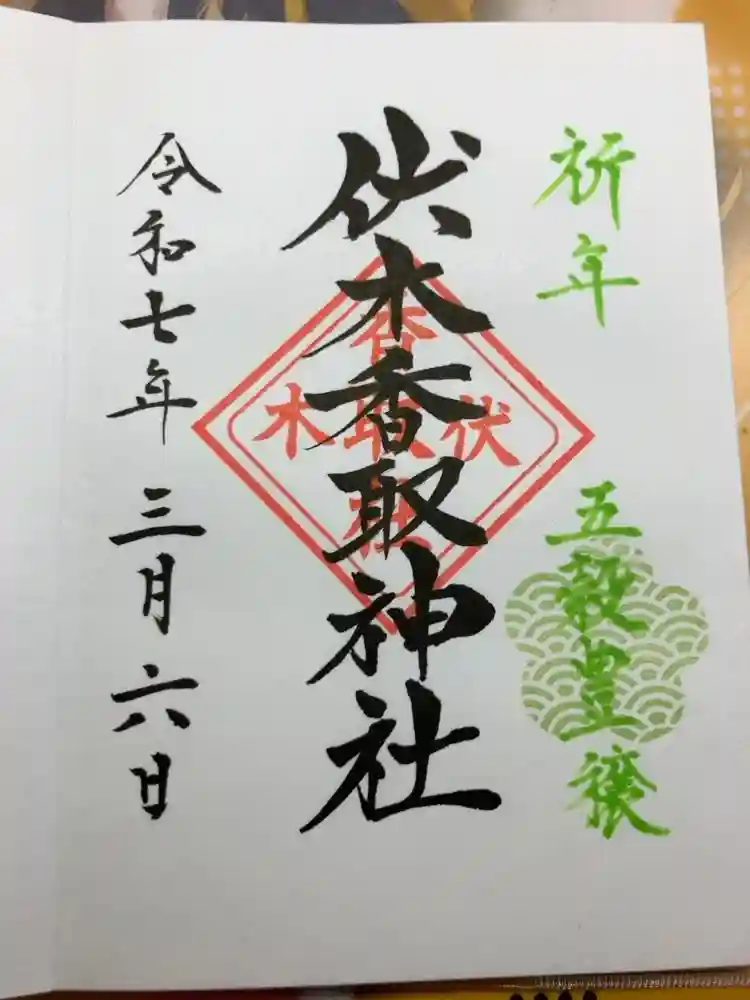 祈年
五穀豊穣
伏木香取神社
伏木
香取
令和七年三月六日